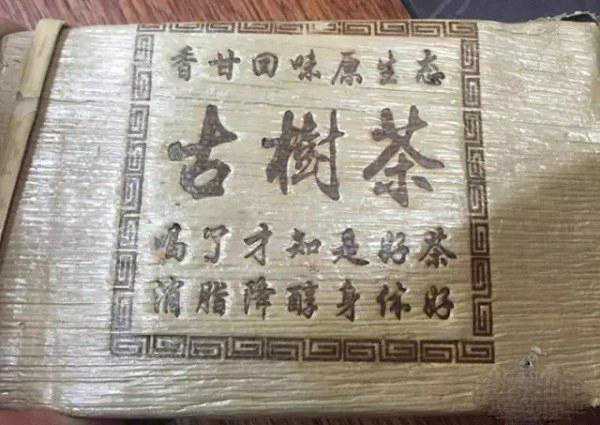 香甘回味原生态
古樹茶
喝了才知是好茶
消脂降醇身体好